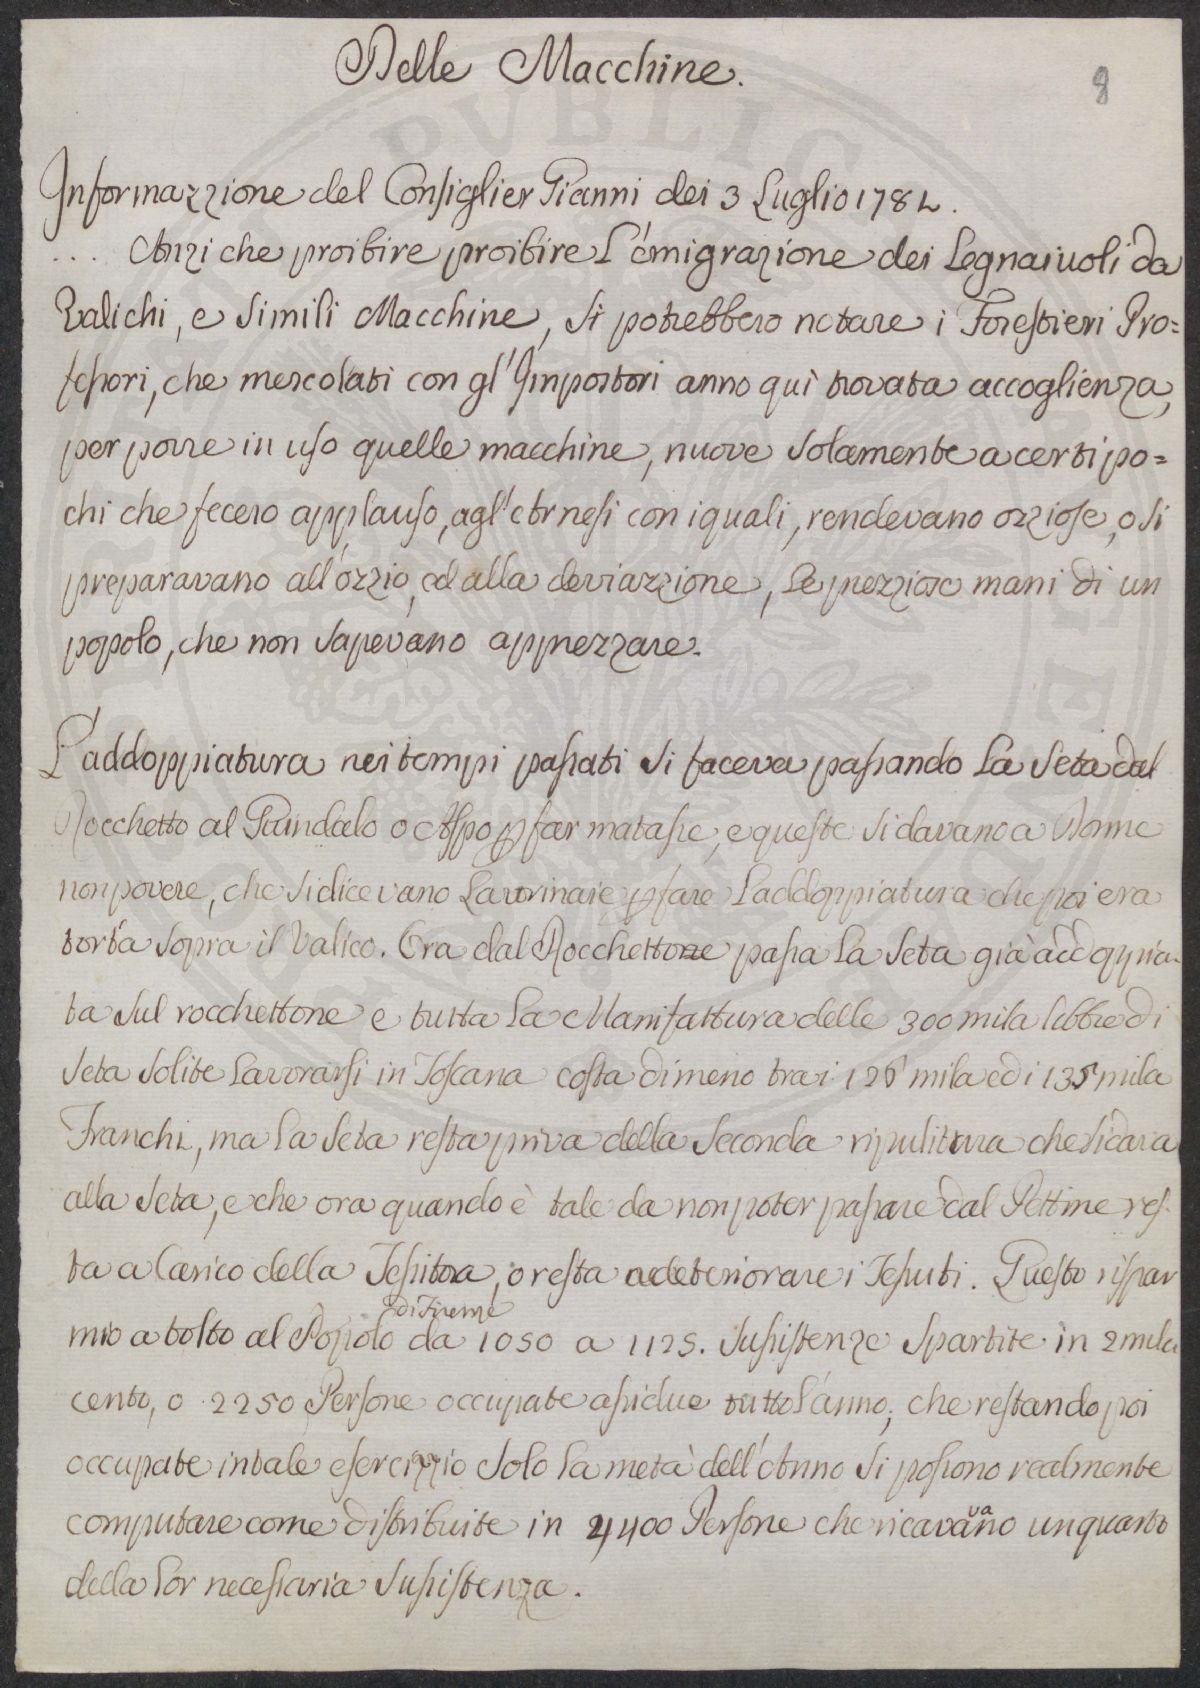 Delle Macchine.
8
Informazzione del Consiglier Gianni dei 3 Luglio 1782.
.... Anzi che proibire proibire l'emigrazione dei Legnaiuoli da
Valichi, e simili Macchine, si potrebbero notare i Forestieri Pro=
fessori, che mescolati con gl'Impostori anno qui trovata accoglienza,
per porre in uso quelle macchine, nuove solamente a certi po=
chi che fecero applauso, agl'Arnesi con i quali, rendevano ozziose, o si
preparavano all'ozzio, ed alla deviazzione, le prezziose mani di un
popolo, che non sapevano apprezzare.
L'addoppiatura nei tempi passati si faceva passando la seta dal
Rocchetto al Guindalo o Aspo p far matasse, e queste si davano a Donne
non povere, che si dicevano Lavorinaie p fare l'addoppiatura che poi era
torta sopra il Valico. Ora dal Rocchettone passa la seta già addoppia-
ta sul rocchettone e tutta la Manifattura delle 300 mila libbre di
seta solite lavorarsi in Toscana costa di meno tra i 126 mila ed i 135 mila
Franchi, ma la seta resta priva della seconda ripulitura che si dava
alla seta, e che ora quando è tale da non poter passare dal Pettine res-
ta a Carico della Tessitora, o resta a deteriorare i Tessuti. Questo rispar
mio a tolto al Popolo di Firenze da 1050 a 1125. sussistenze spartite in 2 mila
cento, o 2250 Persone occupate assidue tutto l'anno, che restando poi
occupate in tale esercizzio solo la metà dell'Anno si possono realmente
computare come distribuite in 4400 Persone che ricavavano un quarto
della lor necessaria sussistenza.